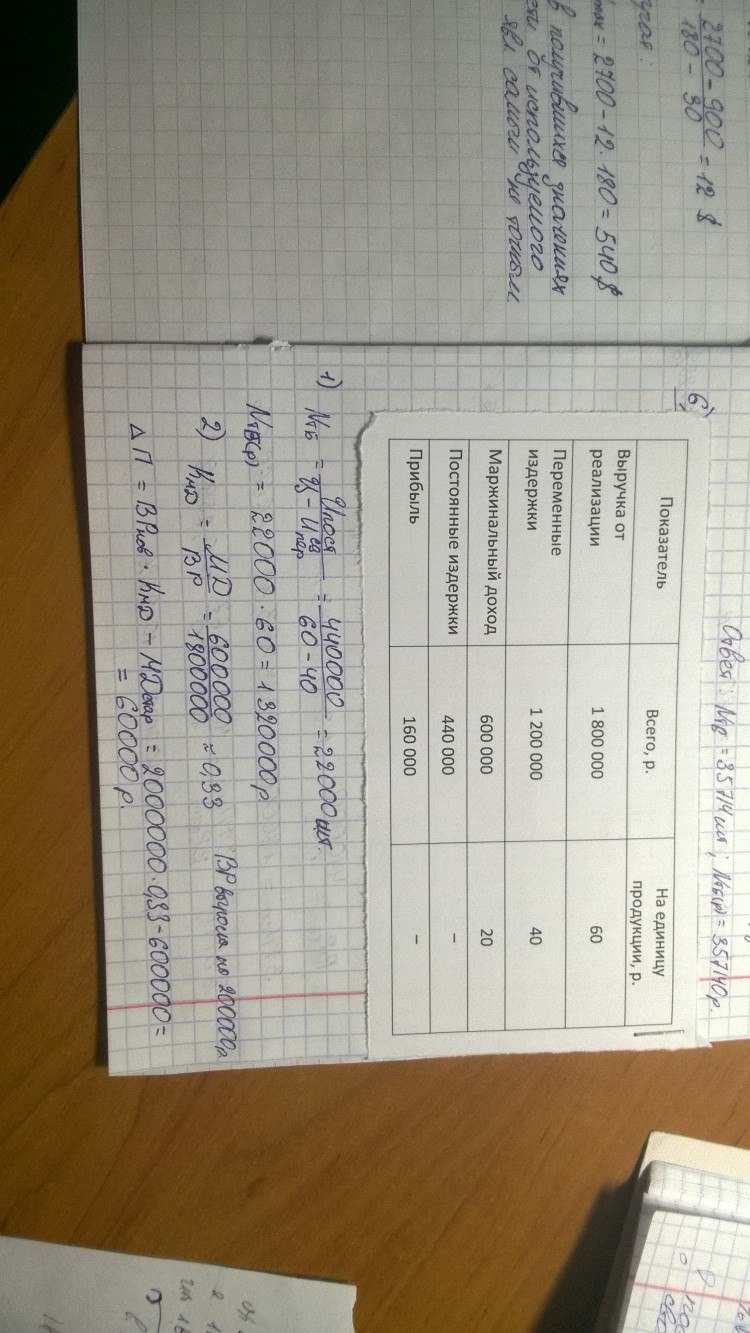 = 2700 - 900 / 180 - 30 = 12 $
max = 2700 - 12 · 180 = 540 $
в получившихся значениях
сти от используемого
явл. самым не точным.
Ответ: Nтб = 35714 шт; Nтб(р) = 357140 р.
6)
Показатель Всего, р. На единицу продукции, р.
Выручка от реализации 1 800 000 60
Переменные издержки 1 200 000 40
Маржинальный доход 600 000 20
Постоянные издержки 440 000 –
Прибыль 160 000 –
1) Nтб = Ипост / Ц - Иперев = 440000 / 60 - 40 = 22000 шт.
Nтб(р) = 22000 · 60 = 1320000 р.
2) Kмд = МД / ВР = 600000 / 1800000 ≈ 0,33 ВР выросла на 200000 р.
ΔП = ВРнов · Кмд - МДстар = 2000000 · 0,33 - 600000 =
= 60000 р.